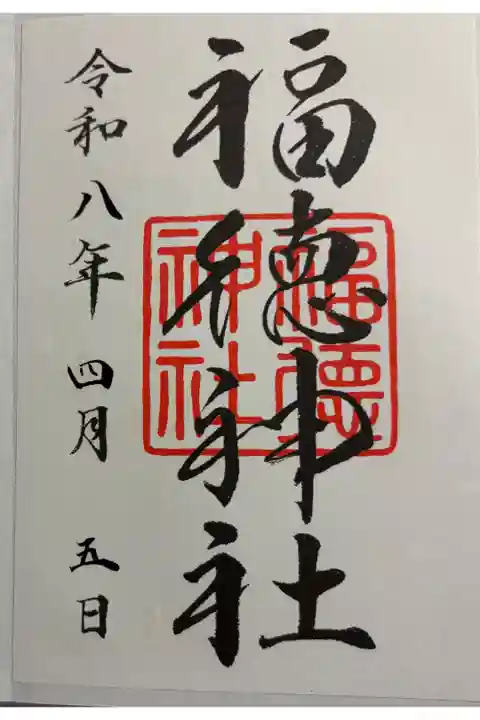 福徳神社
福徳
神社
令和八年四月五日